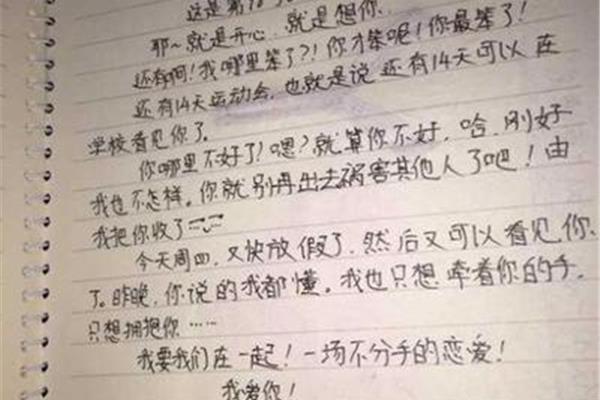 这是第
耶~就是开心,就是想你.
还有啊!我哪里笨了?!你才笨呢!你最笨了!
还有14天运动会,也就是说还有14天可以在
学校看见你了。
你哪里不好了!嗯?就算你不好,哈,刚好
我也不怎样。你就别再出去祸害其他人了吧!由
我把你收了
今天周四,又快放假了,然后又可以看见你
了。昨晚,你说的我都懂。我也只想牵着你的手,
只想拥抱你……
我要我们在一起!一场不分手的恋爱!
我爱你!